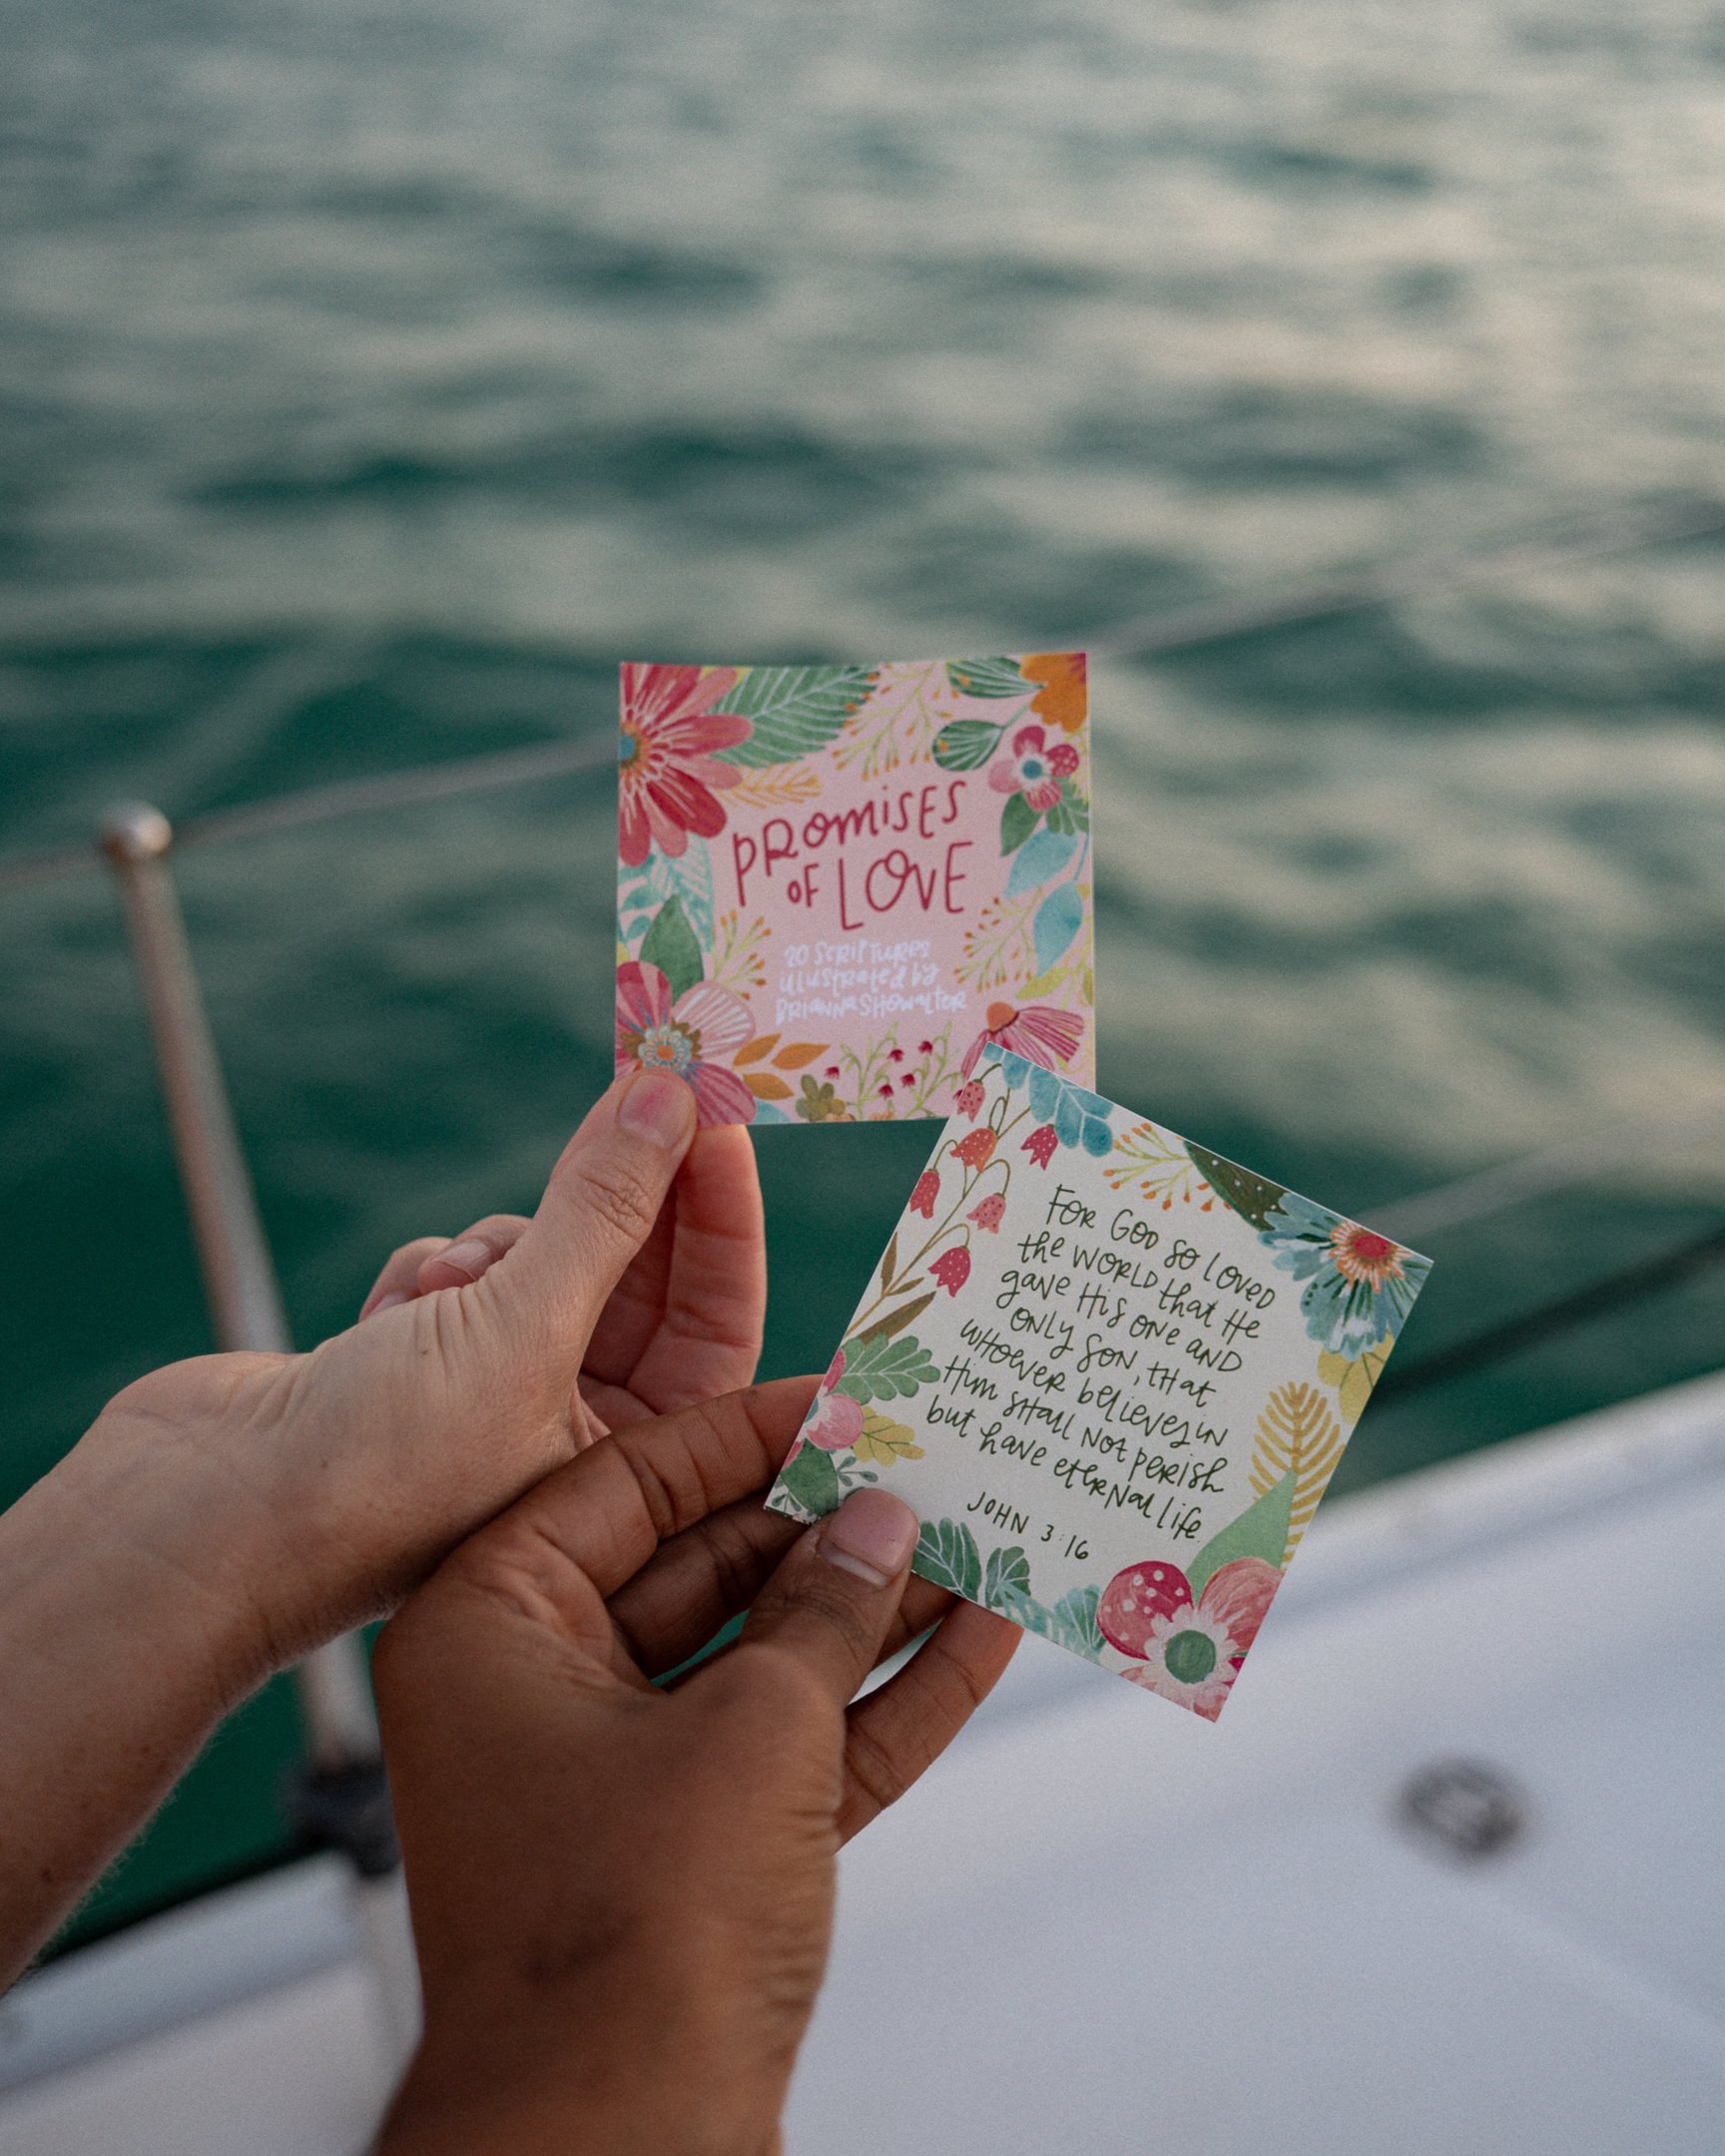 PROMISES
OF LOVE
20 SCRIPTURES
illustrated by
BRIANNA SHOWALTER
FOR GOD so loved
the WORLD that He
gave His one AND
ONLY SON, that
WHOEVER believes in
Him shall NOT PERISH
but have eteRNal life.
JOHN 3:16